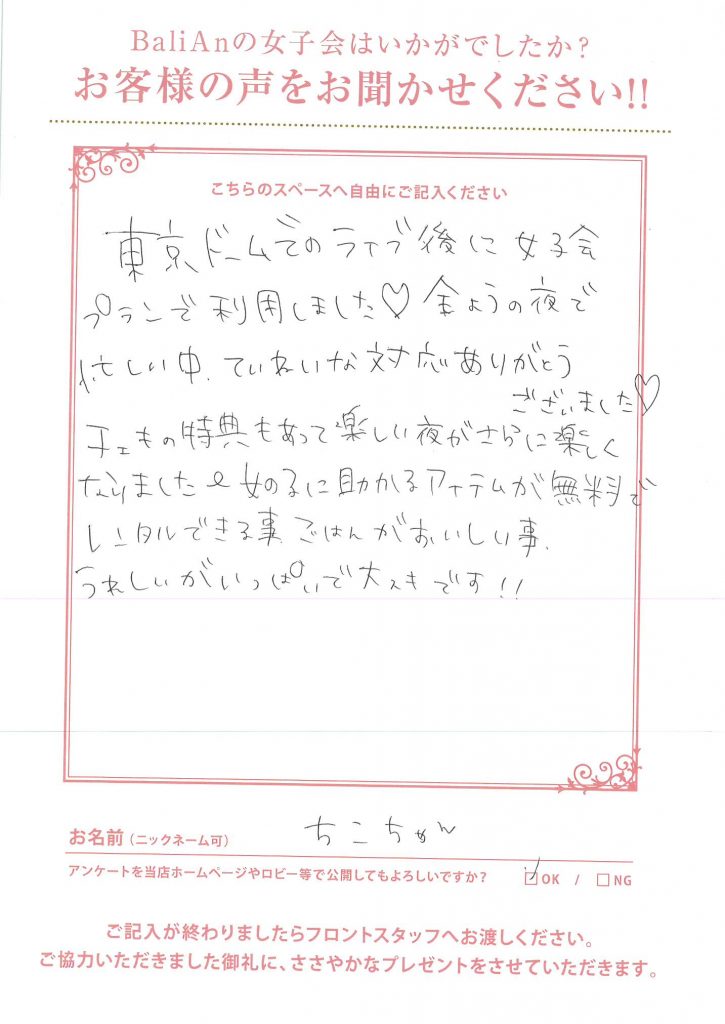 BaliAnの女子会はいかがでしたか?
お客様の声をお聞かせください!!
こちらのスペースへ自由にご記入ください
東京ドームでのライブ後に女子会
プランで利用しました♡金ようの夜で
忙しい中、ていねいな対応ありがとう
ございました♡
チェキの特典もあって楽しい夜がさらに楽しく
なりました 女の子に助かるアイテムが無料で
レンタルできる事、ごはんがおいしい事、
うれしいがいっぱいで大スキです!!
お名前(ニックネーム可) ちこちゃん
アンケートを当店ホームページやロビー等で公開してもよろしいですか? ☑OK / □NG
ご記入が終わりましたらフロントスタッフへお渡しください。
ご協力いただきました御礼に、ささやかなプレゼントをさせていただきます。